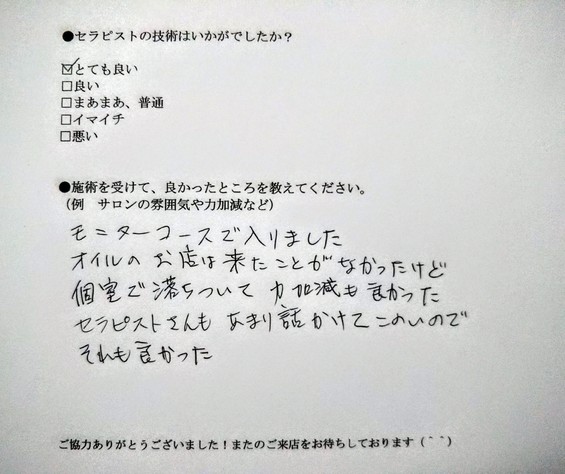 ●セラピストの技術はいかがでしたか？
☑とても良い
□良い
□まあまあ、普通
□イマイチ
□悪い
●施術を受けて、良かったところを教えてください。
（例　サロンの雰囲気や力加減など）
モニターコースで入りました
オイルのお店は来たことがなかったけど
個室で落ちついて力加減も良かった
セラピストさんもあまり話かけてこのいので
それも良かった
ご協力ありがとうございました！またのご来店をお待ちしております（＾＾）